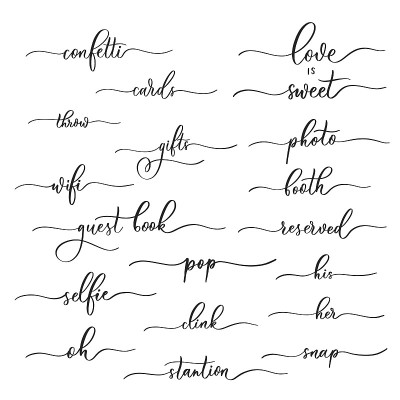 confetti
cards
throw
gifts
wifi
guest book
pop
selfie
clink
oh
stantion
love
is
sweet
photo
booth
reserved
his
her
snap